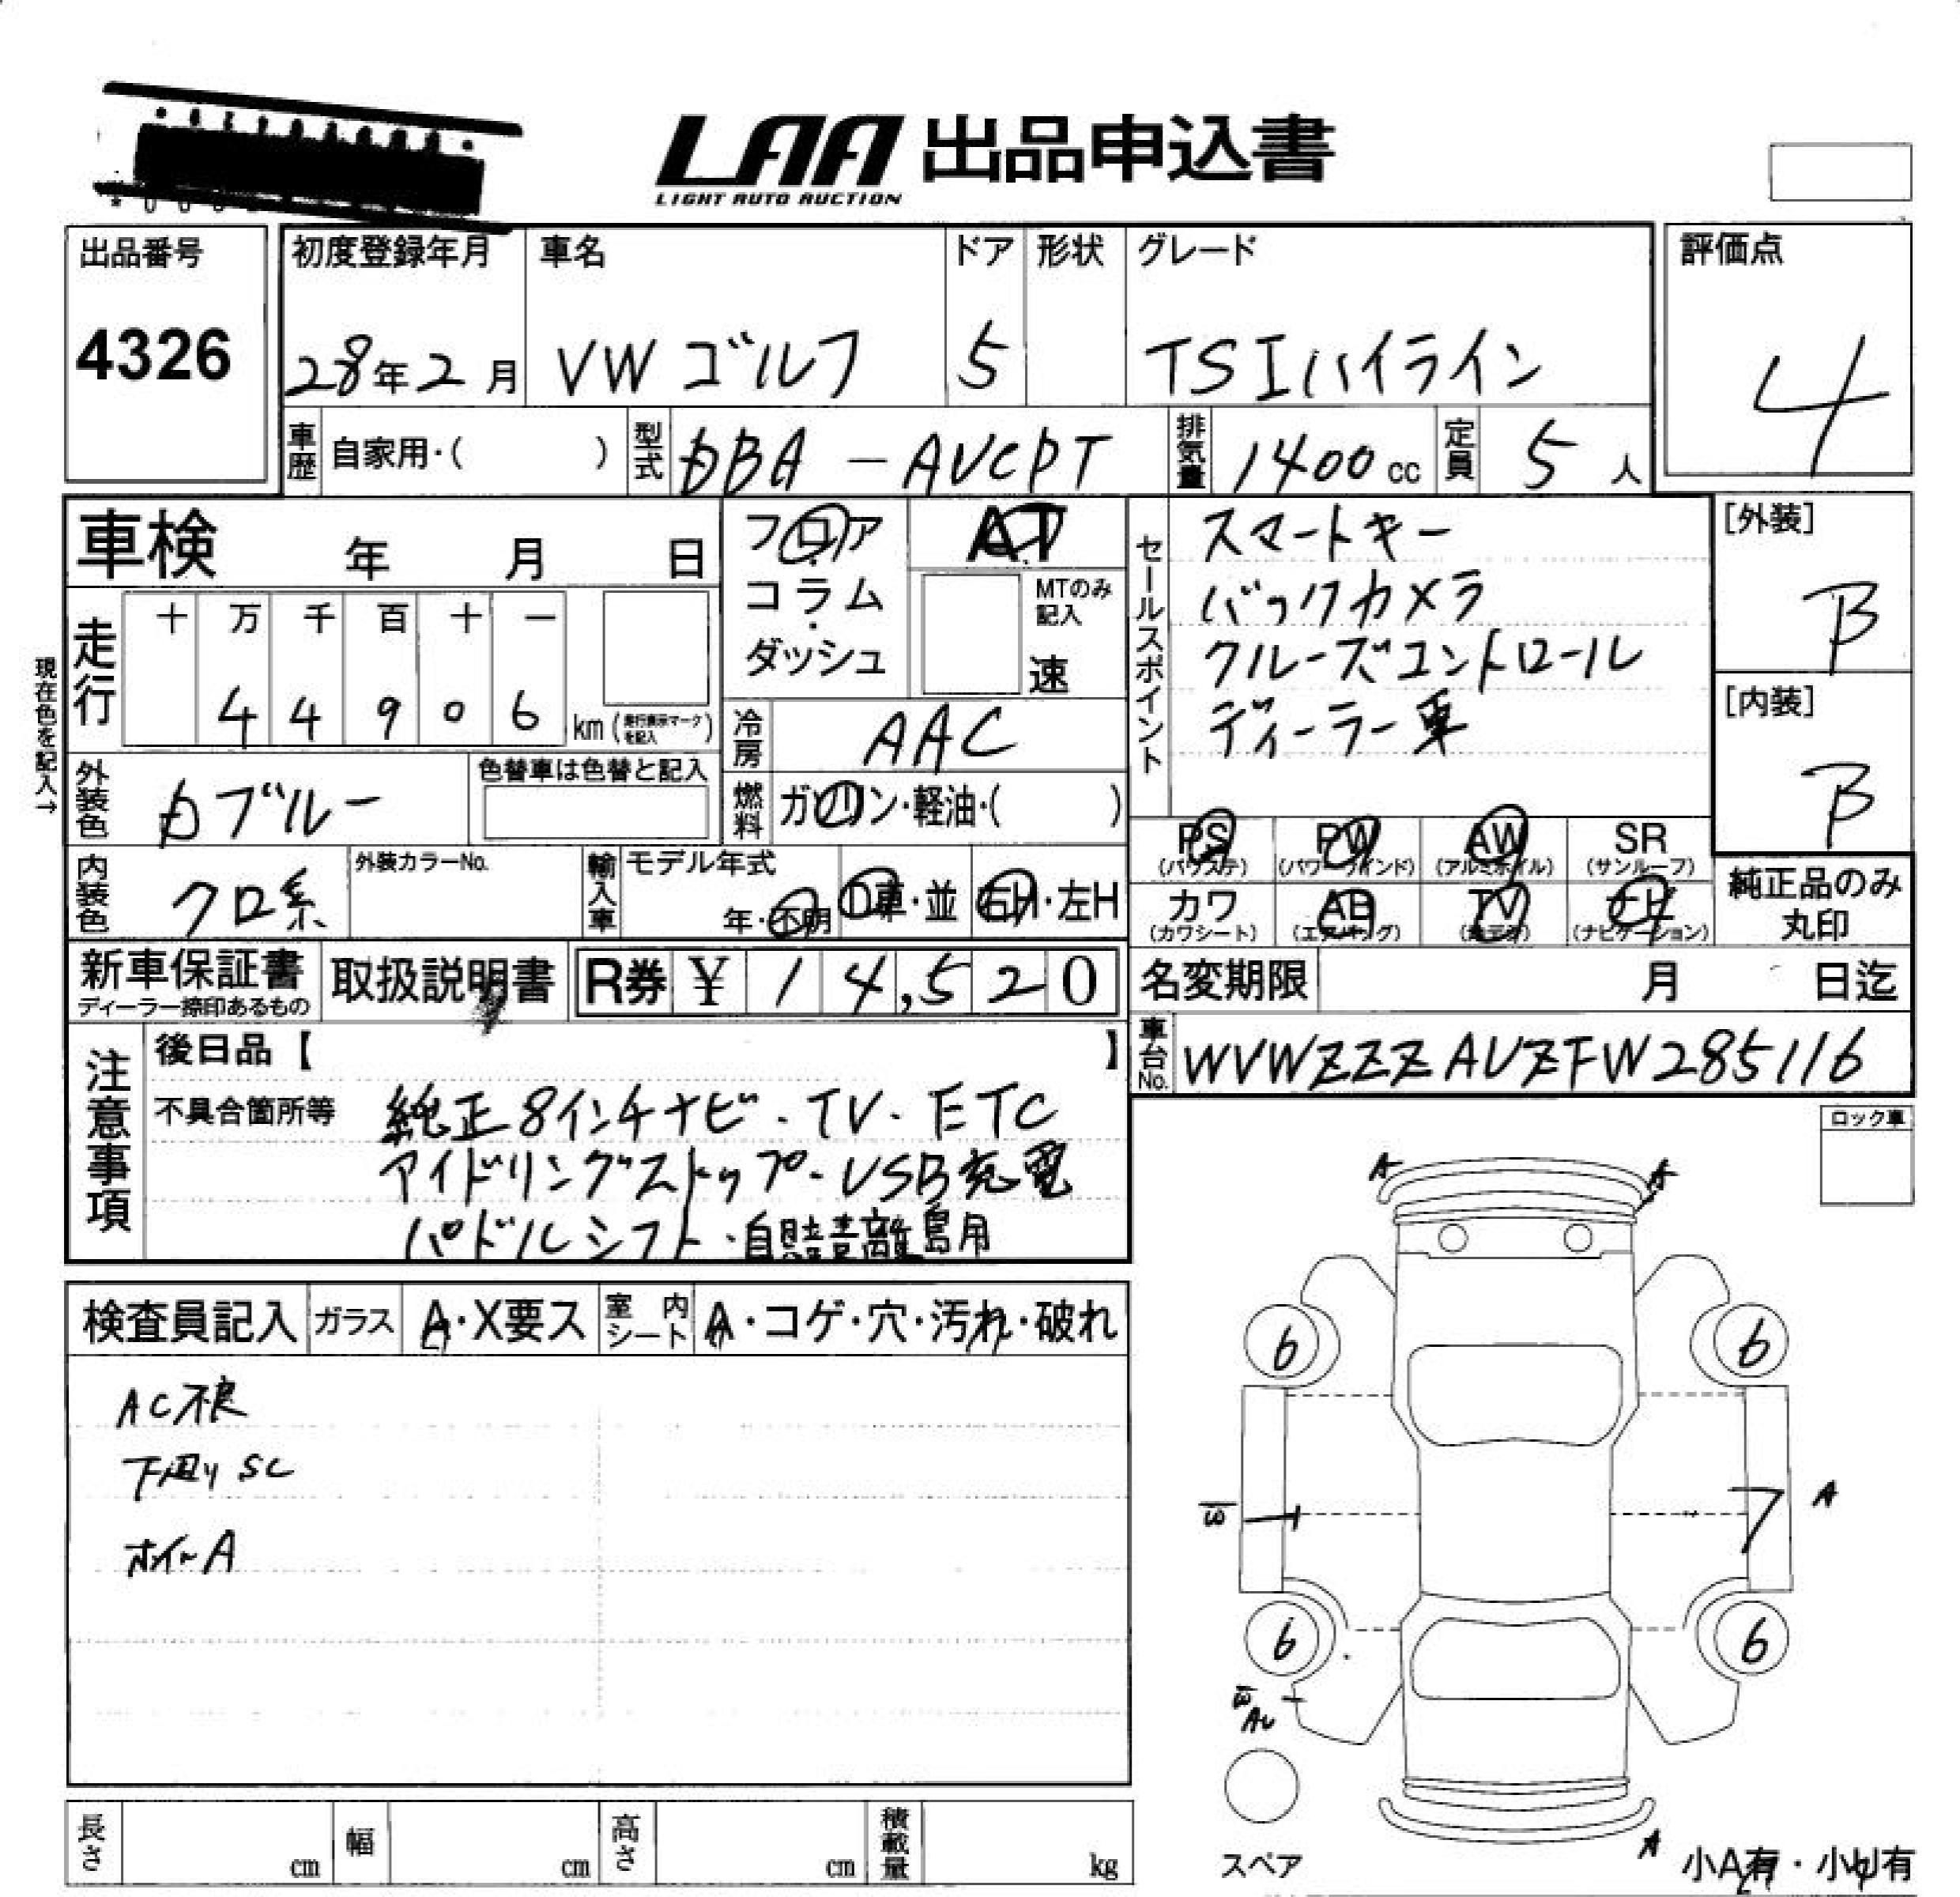 LAA 出品申込書
LIGHT AUTO AUCTION
出品番号
4326
初度登録年月
28年2月
車名
VW ゴルフ
ドア
5
形状
グレード
TSIハイライン
評価点
4
車歴 自家用・( )
型式 DBA-AUCPT
排気量 1400cc
定員 5人
車検 年 月 日
フロア・コラム・ダッシュ
AT
MTのみ記入
速
セールスポイント
スマートキー
バックカメラ
クルーズコントロール
ディーラー車
[外装]
B
[内装]
B
現在色を記入→
走行
十 万 千 百 十 一
4 4 9 0 6 km (走行表示マークを記入)
冷房 AAC
外装色
ブルー
色替車は色替と記入
燃料 ガソリン・軽油・( )
PS (パワステ)
PW (パワーウインド)
AW (アルミホイル)
SR (サンルーフ)
カワ (カワシート)
AB (エアバッグ)
TV
ナビ (ナビゲーション)
純正品のみ丸印
内装色 クロ系
外装カラーNo.
輸入車
モデル年式
年・不明
D車・並
右H・左H
新車保証書
ディーラー捺印あるもの
取扱説明書
R券 ¥ 14,520
名変期限 月 日迄
車台No. WVWZZZAUZFW285116
注意事項
後日品【 】
不具合箇所等 純正8インチナビ・TV・ETC
アイドリングストップ・USB充電
パドルシフト・自賠責離島用
ロック車
検査員記入
ガラス A・X要ス
室内シート A・コゲ・穴・汚れ・破れ
AC不良
下周りSC
ホイールA
A
A
6
6
W
A
6
6
W
AU
スペア
A
小A有・小U有
長さ cm
幅 cm
高さ cm
積載量 kg